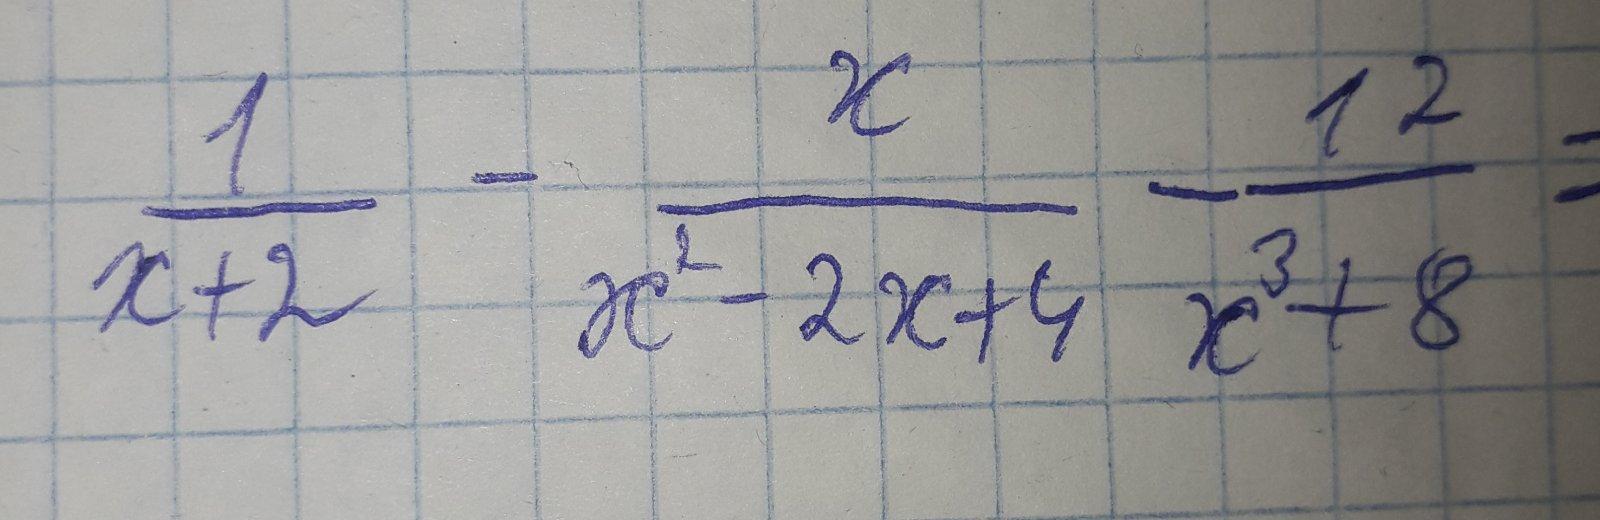 1/(x+2) - x/(x² - 2x+4) - 12/(x³+8) =